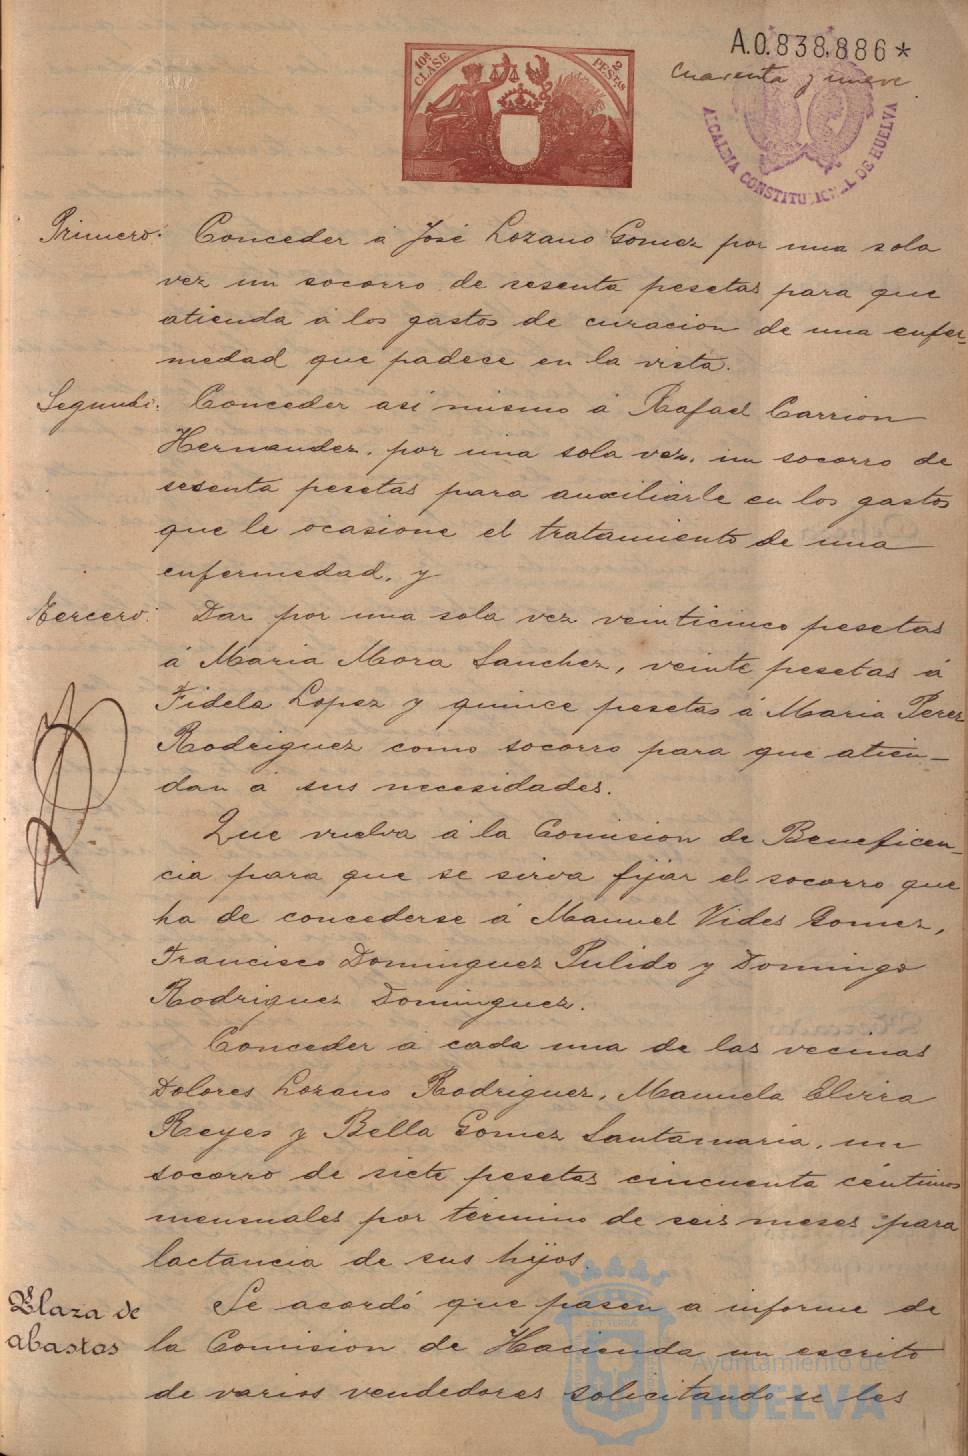 A.0.838.886*
cuarenta y nueve
10ª CLASE
2 PESTAS
ALCALDIA CONSTITUCIONAL DE HUELVA
Primero: Conceder á José Lozano Gomez por una sola
vez un socorro de sesenta pesetas para que
atienda á los gastos de curacion de una enfer-
medad que padece en la vista.
Segundo: Conceder asi mismo á Rafael Carrion
Hernandez, por una sola vez, un socorro de
sesenta pesetas para auxiliarle en los gastos
que le ocasione el tratamiento de una
enfermedad, y
Tercero: Dar por una sola vez veinticinco pesetas
á Maria Mora Sanchez, veinte pesetas á
Fidela Lopez y quince pesetas á Maria Perez
Rodriguez como socorro para que atien-
dan á sus necesidades.
Que vuelva á la Comision de Beneficen-
cia para que se sirva fijar el socorro que
ha de concederse á Manuel Vides Gomez,
Francisco Dominguez Pulido y Domingo
Rodriguez Dominguez.
Conceder á cada una de las vecinas
Dolores Lozano Rodriguez, Manuela Elvira
Reyes y Bella Gomez Santamaria, un
socorro de siete pesetas cincuenta céntimos
mensuales por término de seis meses para
lactancia de sus hijos.
Plaza de
abastos
Se acordó que pasen a informe de
la Comision de Hacienda un escrito
de varios vendedores solicitando se les
Ayuntamiento de
HUELVA